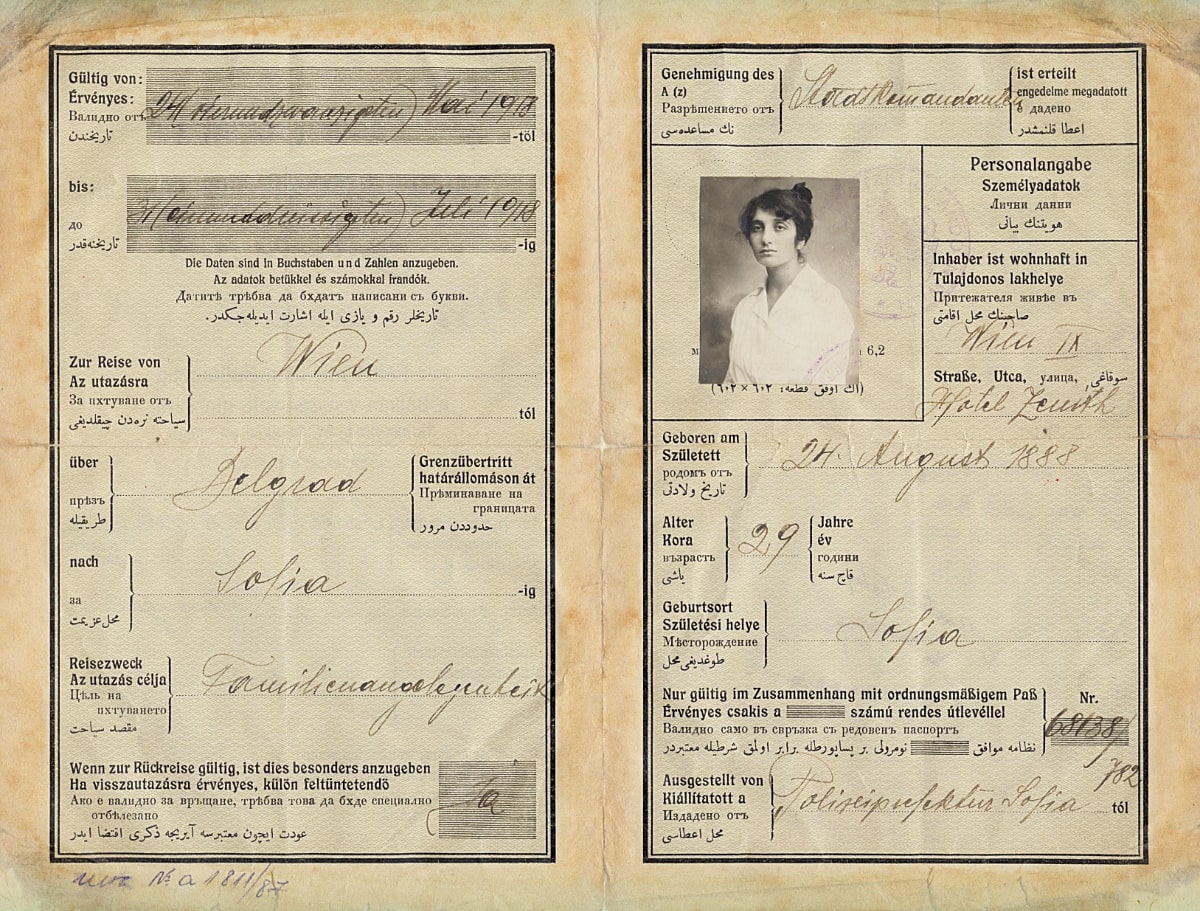 Gültig von:
Érvényes:
Валидно отъ
تاریخندن
24 (vierundzwanzigsten) Mai 1918
-től
bis:
до
تاریخنه‌قدر
31 (einunddreissigsten) Juli 1918
-ig
Die Daten sind in Buchstaben und Zahlen anzugeben.
Az adatok betükkel és számokkal irandók.
Датитѣ трѣбва да бѫдатъ написани съ букви.
تاریخلر رقم و یازی ایله اشارت ایدیله‌جکدر.
Zur Reise von
Az utazásra
За пѫтуване отъ
سیاحته نره‌دن چیقلدیغی
Wien
tól
über
прѣзъ
طریقیله
Belgrad
Grenzübertritt
határállomáson át
Прѣминаване на
границата
حدوددن مرور
nach
за
محل عزیمت
Sofia
-ig
Reisezweck
Az utazás célja
Цѣль на
пѫтуването
مقصد سیاحت
Familienangelegenheit
Wenn zur Rückreise gültig, ist dies besonders anzugeben
Ha visszautazásra érvényes, külön feltüntetendő
Ако е валидно за връщане, трѣбва това да бѫде специално
отбѣлезано
عودت ایچون معتبرسه آیریجه ذکری اقتضا ایدر
Ja
№ a 1811/87
Genehmigung des
A (z)
Разрѣшението отъ
نك مساعده‌سی
Stadtkomandanten
ist erteilt
engedelme megadatott
е дадено
اعطا قلنمشدر
6,2
(اك اوفق قطعه: ٦٠٢ × ٦٠٢)
Personalangabe
Személyadatok
Лични данни
هویتنك بیانی
Inhaber ist wohnhaft in
Tulajdonos lakhelye
Притежателя живѣе въ
صاحبنك محل اقامتی
Wien IX
Straße, Utca, улица, سوقاغی
Hotel Zenith
Geboren am
Született
родомъ отъ
تاریخ ولادتی
24. August 1888
Alter
Kora
възрасть
یاشی
29
Jahre
év
години
قاچ سنه
Geburtsort
Születési helye
Мѣсторождение
طوغدیغی محل
Sofia
Nur gültig im Zusammenhang mit ordnungsmäßigem Paß
Érvényes csakis a számú rendes útlevéllel
Валидно само въ свръзка съ редовенъ паспортъ
نظامه موافق نومرولی بر پساپورطله برابر اولمق شرطیله معتبردر
Nr.
68138/
782
Ausgestellt von
Kiállitatott a
Издадено отъ
محل اعطاسی
Polizeiprefektur Sofia
tól